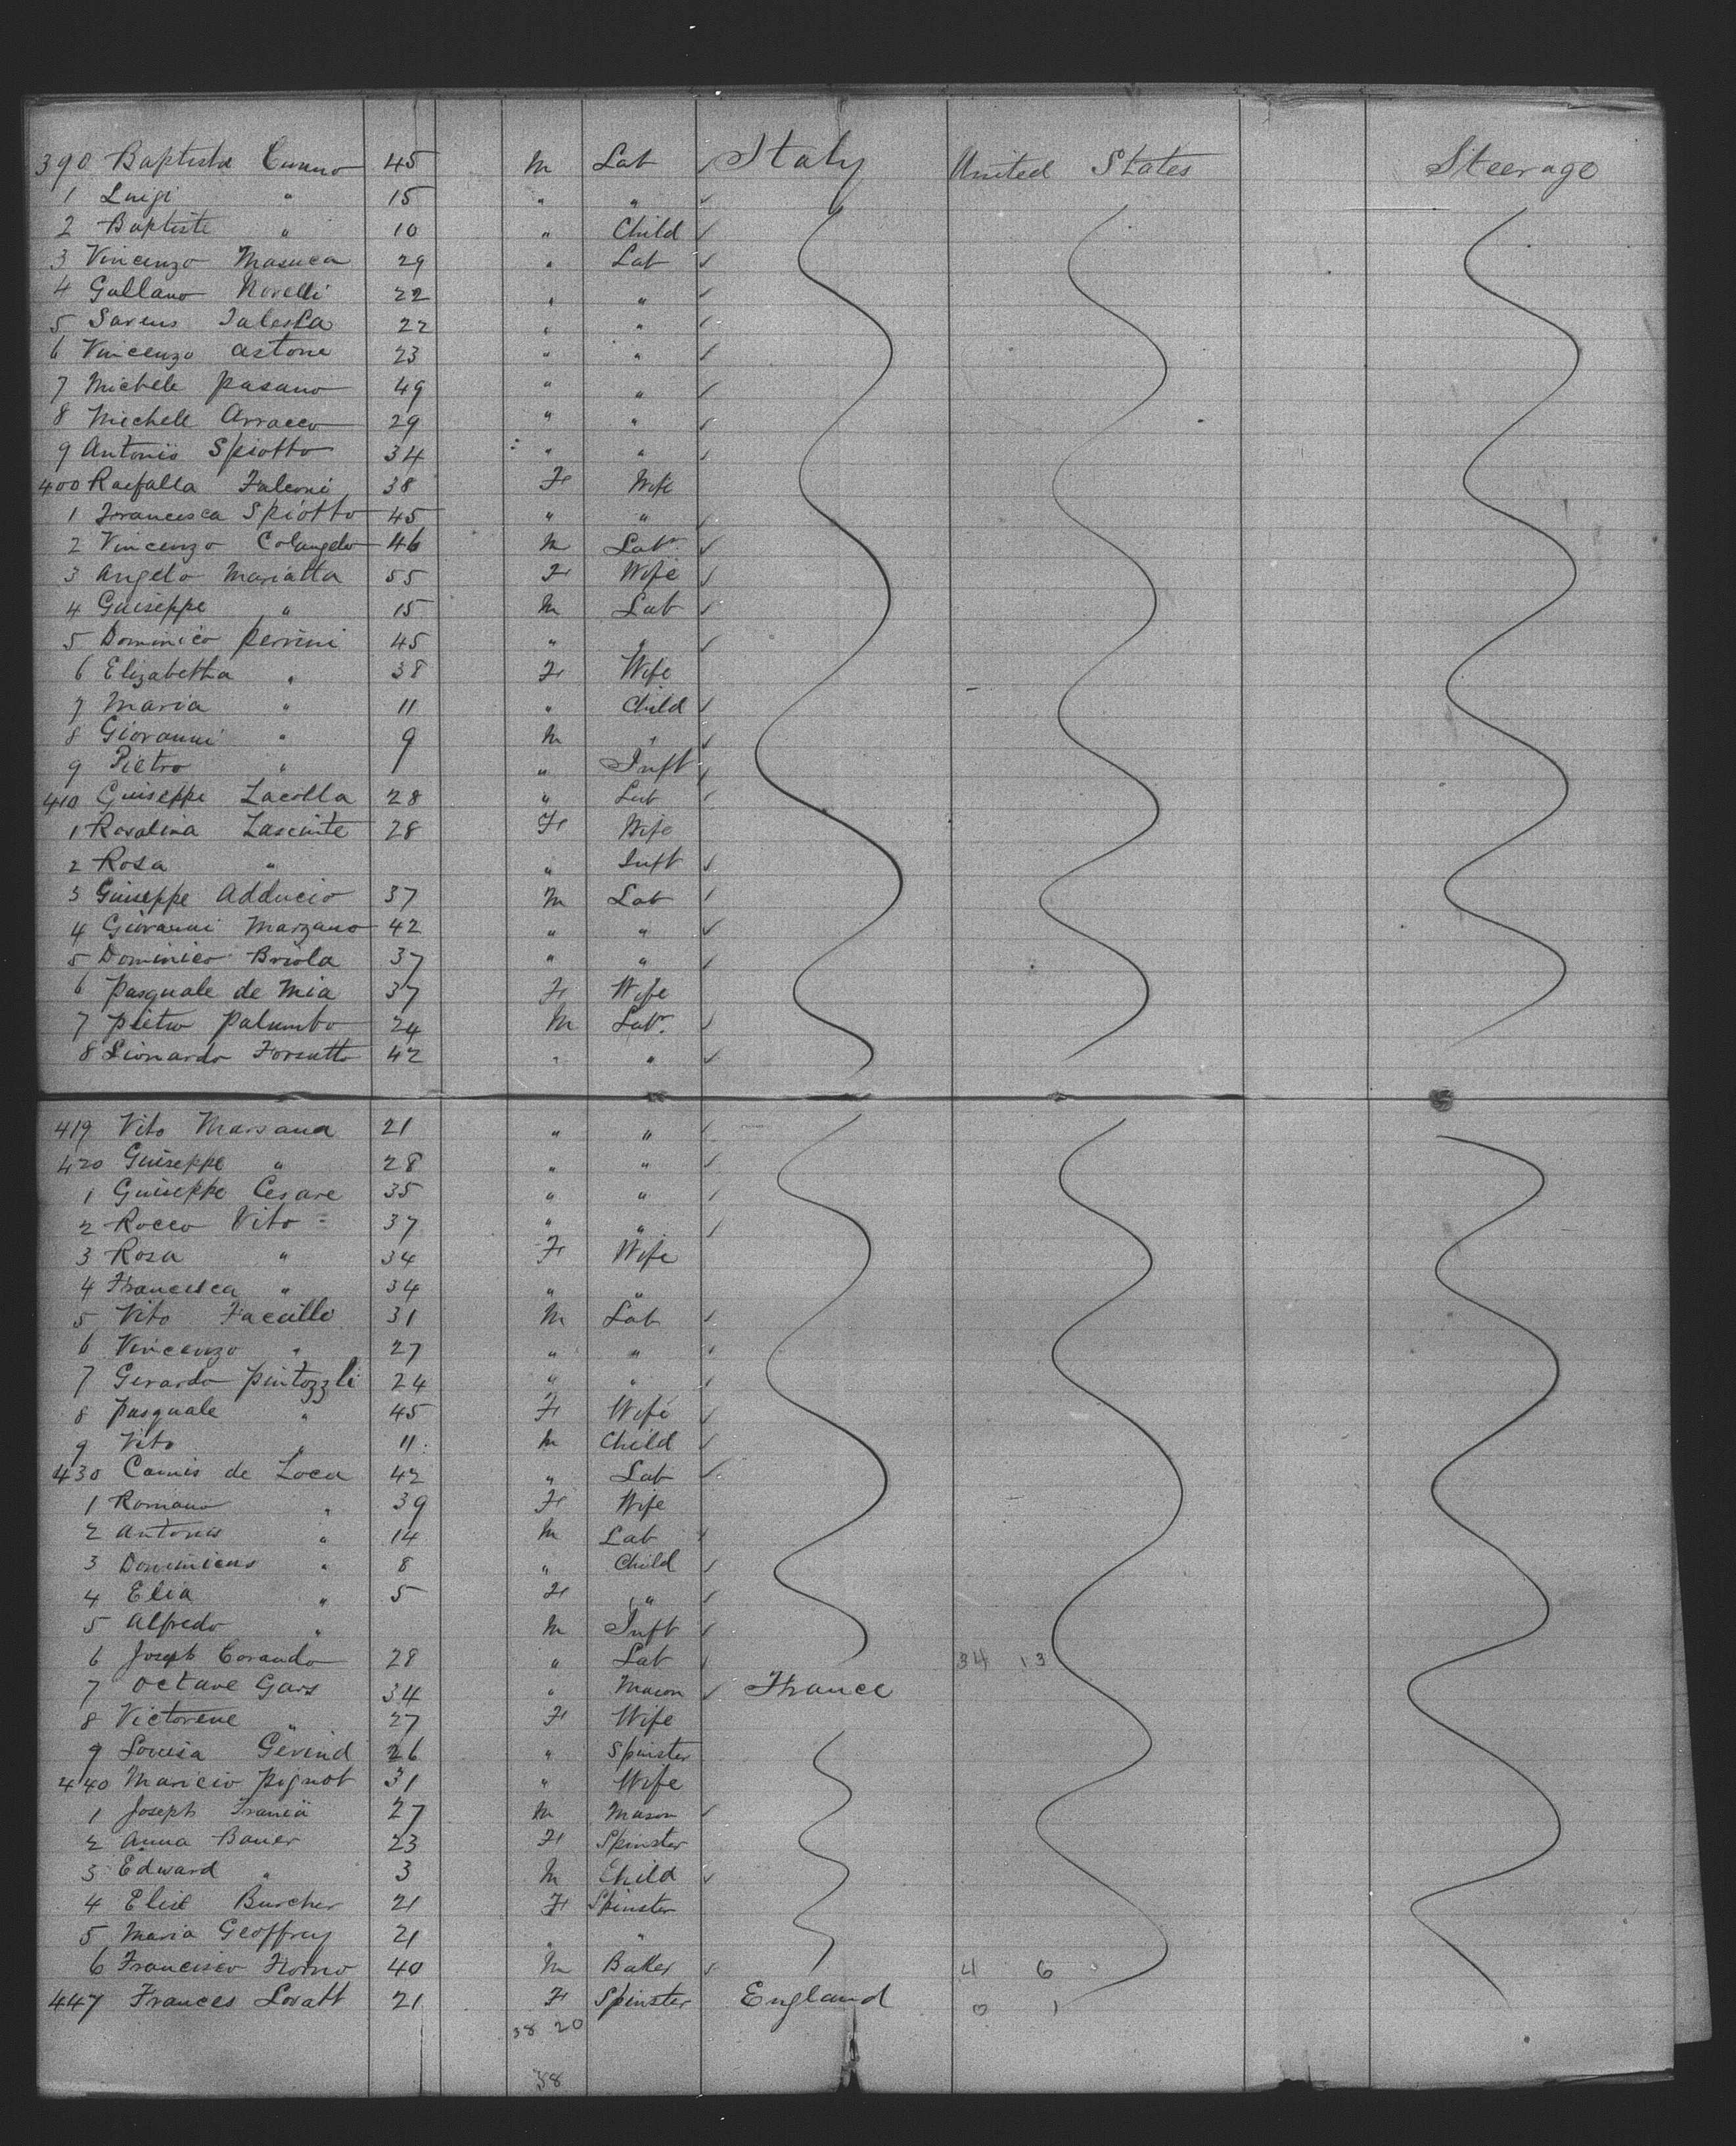 390 Baptista Cunno 45 m Lab ✓ Italy United States Steerage
1 Luigi " 15 " " ✓
2 Baptiste " 10 " Child ✓
3 Vincenzo Masuca 29 " Lab ✓
4 Gallano Novelli 22 " " ✓
5 Saveus 22 " " ✓
6 Vincenzo Astone 23 " " ✓
7 Michele Pasano 49 " " ✓
8 Michele Arracco 29 " " ✓
9 Antonio Spiotto 34 " " ✓
400 Raefalla Falconi 38 F Wife
1 Francesca Spiotto 45 " "
2 Vincenzo Colangelo 46 M Labr ✓
3 Angelo Mariatta 55 F Wife ✓
4 Guiseppe " 15 M Lab ✓
5 Dominico Perrini 45 " " ✓
6 Elizabetha " 38 F Wife
7 Maria " 11 " Child ✓
8 Giovanni " 9 M " ✓
9 Pietro " 1 " Inft ✓
410 Guiseppe Lacolla 28 " Lab ✓
1 Rosalina Lascinte 28 F Wife
2 Rosa " " Inft ✓
3 Guiseppe Adducio 37 M Lab ✓
4 Giovanni Marzano 42 " " ✓
5 Dominico Briola 37 " " ✓
6 Pasquale de Mia 37 F Wife
7 Pietro Palumbo 24 M Labr ✓
8 Lionardo Forsutto 42 " " ✓
419 Vito Marsana 21 " " ✓
420 Guiseppe " 28 " " ✓
1 Guiseppe Cesare 35 " " ✓
2 Rocco Vito = 37 " " ✓
3 Rosa " 34 F Wife
4 Francesca " 34 " "
5 Vito Facillo 31 M Lab ✓
6 Vincenzo " 27 " " ✓
7 Gerardo Pintozzli 24 " " ✓
8 Pasquale " 45 F Wife ✓
9 Vito " 11 M Child ✓
430 Camis de Loca 42 " Lab ✓
1 Romano " 39 F Wife
2 Antonio " 14 M Lab ✓
3 Dominicus " 8 " Child ✓
4 Elia " 5 F " ✓
5 Alfredo " M Inft ✓
6 Joseph Corando 28 " Lab ✓ 34 13
7 Octave Gars 34 " Mason ✓ France
8 Victorene " 27 F Wife
9 Louisa Gerind 26 " Spinster
440 Maricio Pignot 31 " Wife
1 Joseph 27 M Mason ✓
2 Anna Bauer 23 F Spinster
3 Edward " 3 M Child ✓
4 Elise Burcher 21 F Spinster
5 Maria Geoffrey 21 " "
6 Francisco Homo 40 M Baker ✓ 4 6
447 Frances Lovatt 21 F Spinster England 0 1
38 20
58